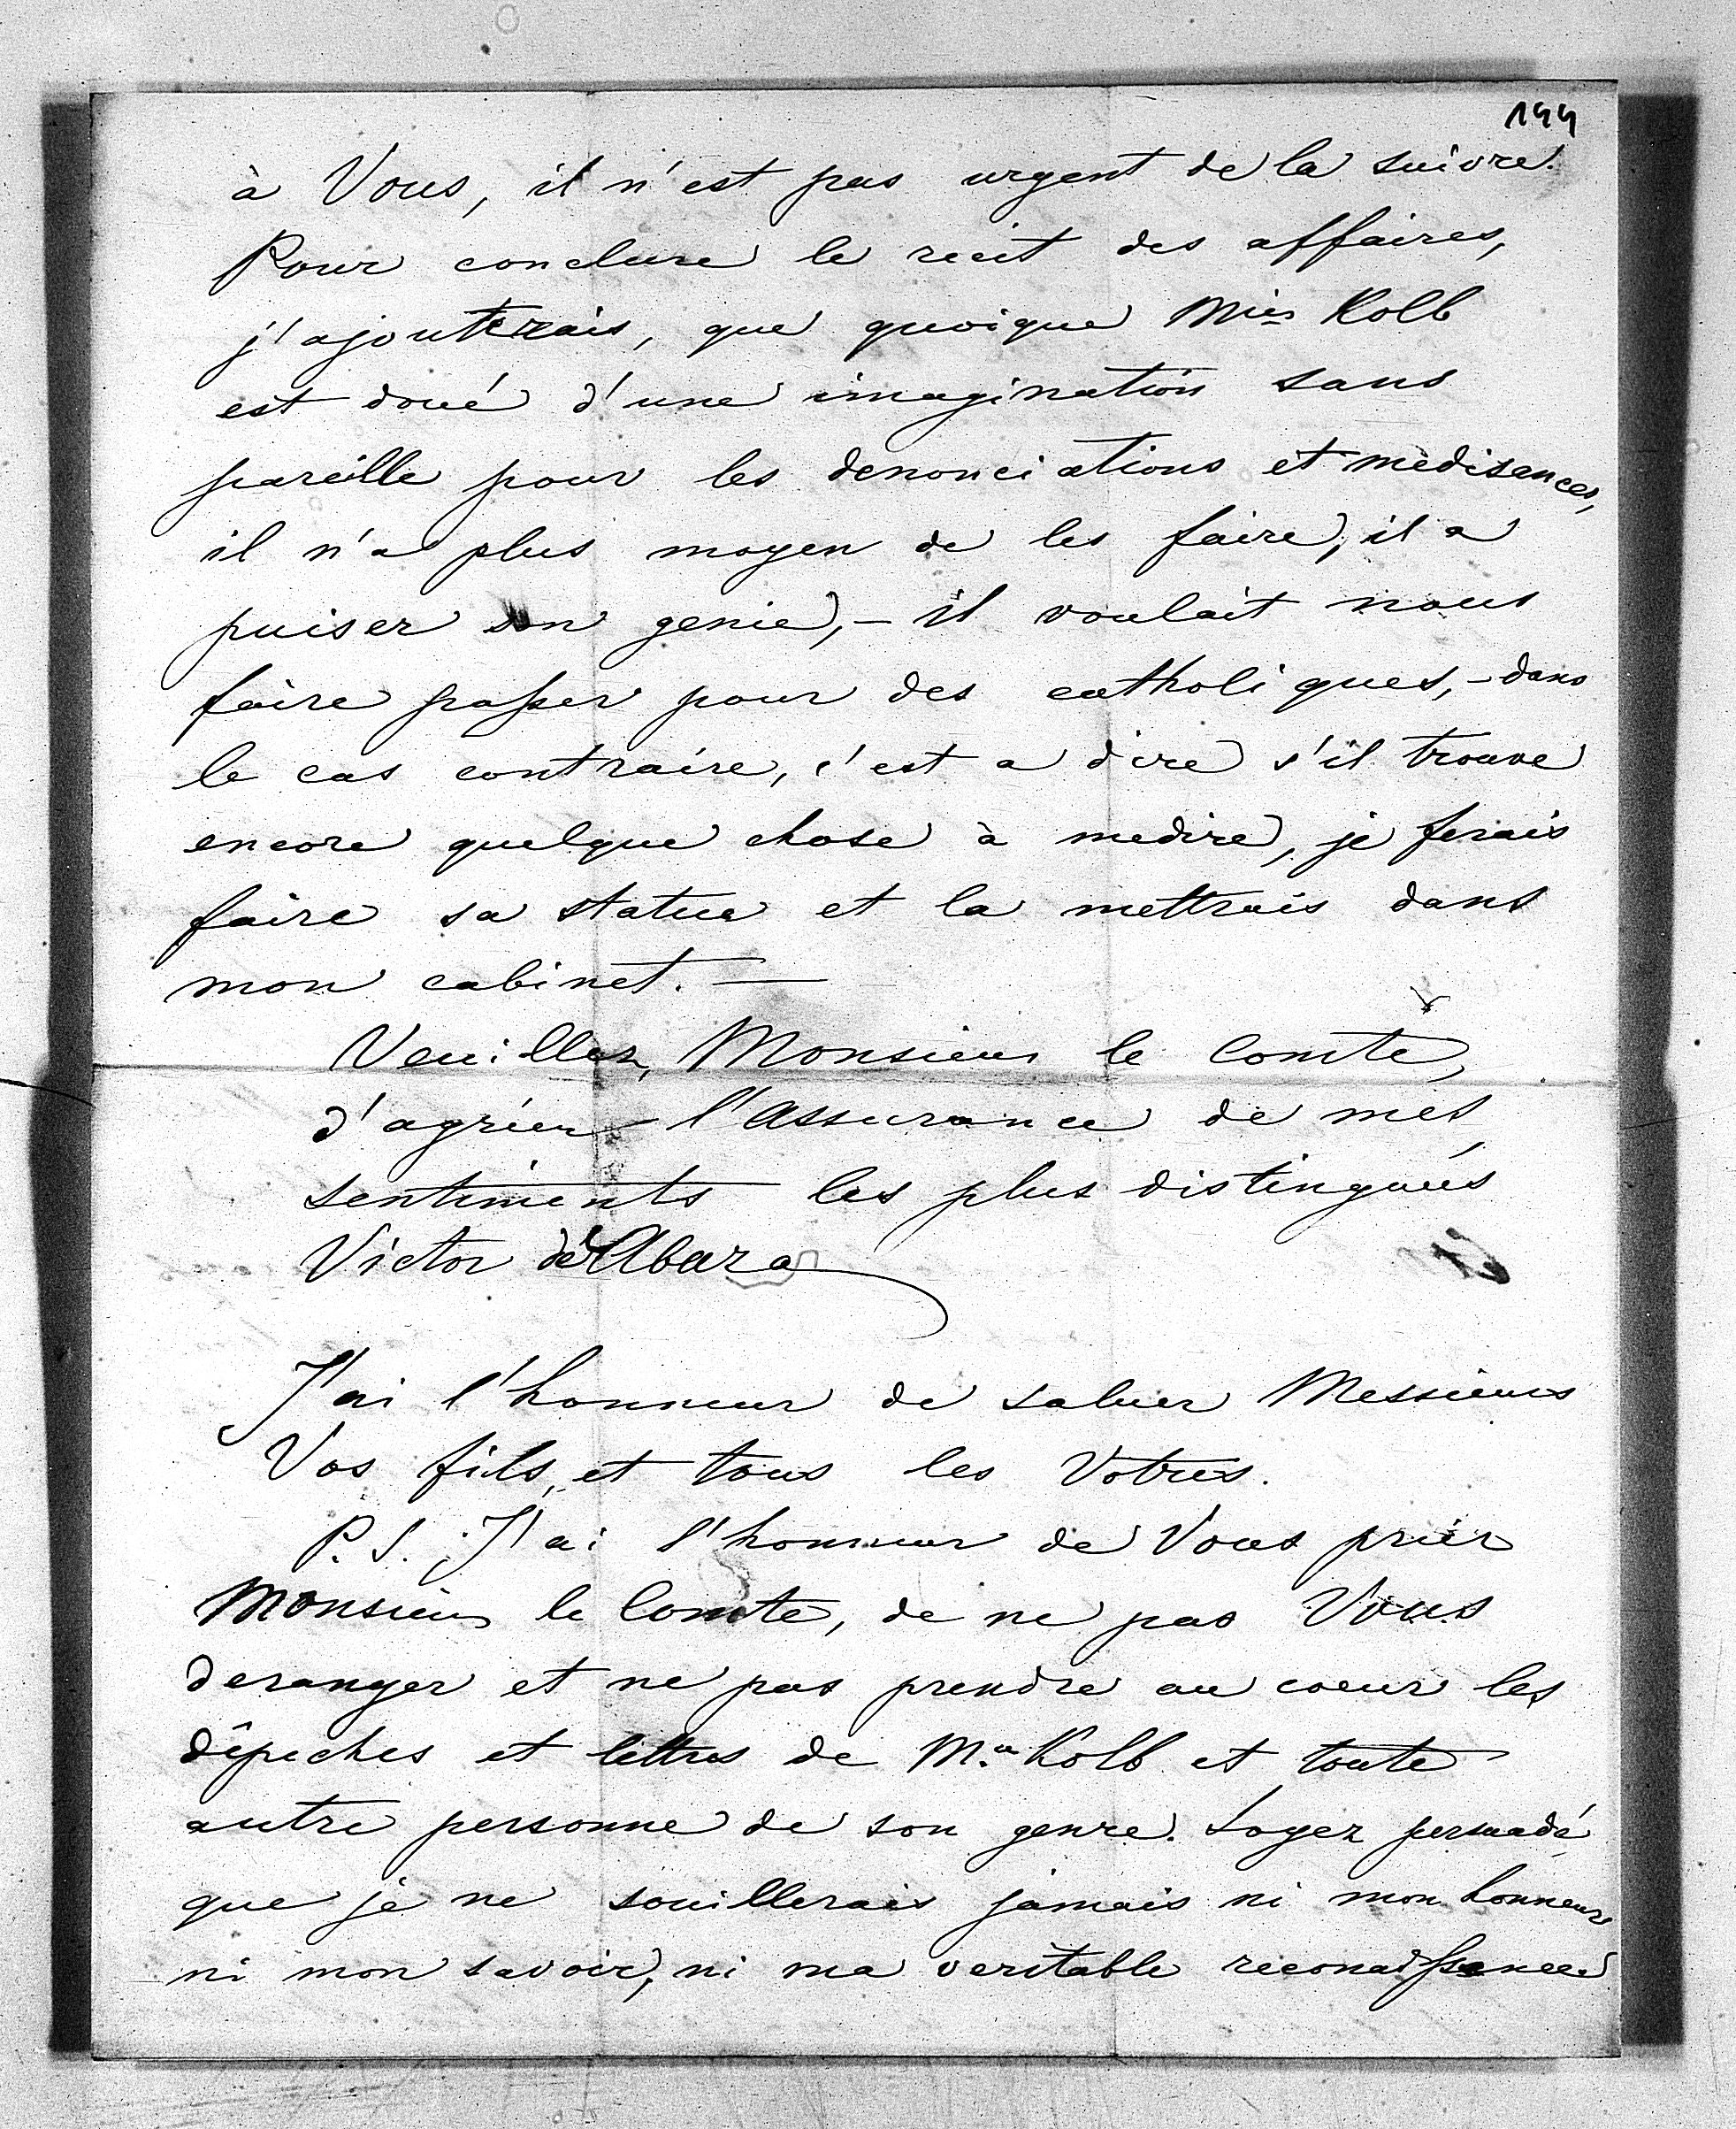 199
à Vous, il n'est pas urgent de la suivre.
Pour conclure le recit des affaires,
j'ajouterais, que quoique Kolb
est doué d'une imagination sans
pareille pour les denonciations et medisances,
il n'a plus moyen de les faire, il a
puiser son genie, – il voulait nous
faire passer pour des catholiques, – dans
le cas contraire, c'est a dire s'il trouve
encore quelque chose à medire, je ferais
faire sa statue et la mettrais dans
mon cabinet. —
Veuillez, Monsieur le Comte,
d'agréer l'assurance de mes
sentiments les plus distingués
Victor de Abaza
J'ai l'honneur de saluer Messieurs
Vos fils, et tous les Votres.
P. S. J'ai l'honneur de Vous prier
Monsieur le Comte, de ne pas Vous
deranger et ne pas prendre au coeur les
dêpeches et lettres de Kolb et toute
autre personne de son genre. Soyez persuadé
que je ne souillerais jamais ni mon honneur
ni mon savoir, ni ma veritable reconaissance